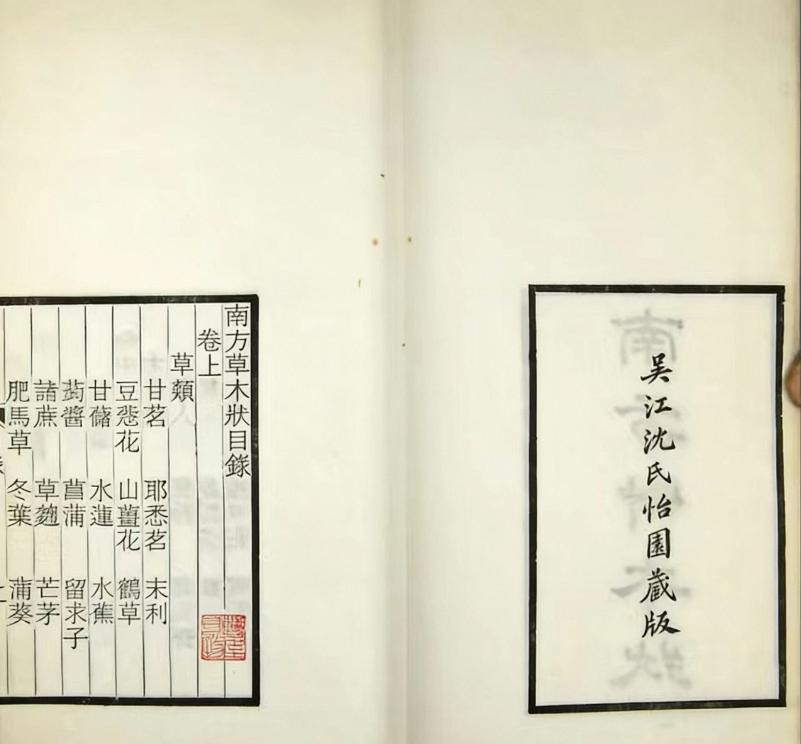 吳江沈氏怡園藏版
南方草木狀目錄
卷上
草類
甘茗 耶悉茗 末利
豆蔻花 山薑花 鶴草
甘藷 水蓮 水蕉
蒟醬 菖蒲 留求子
諸蔗 草麴 芒茅
肥馬草 冬葉 蒲葵